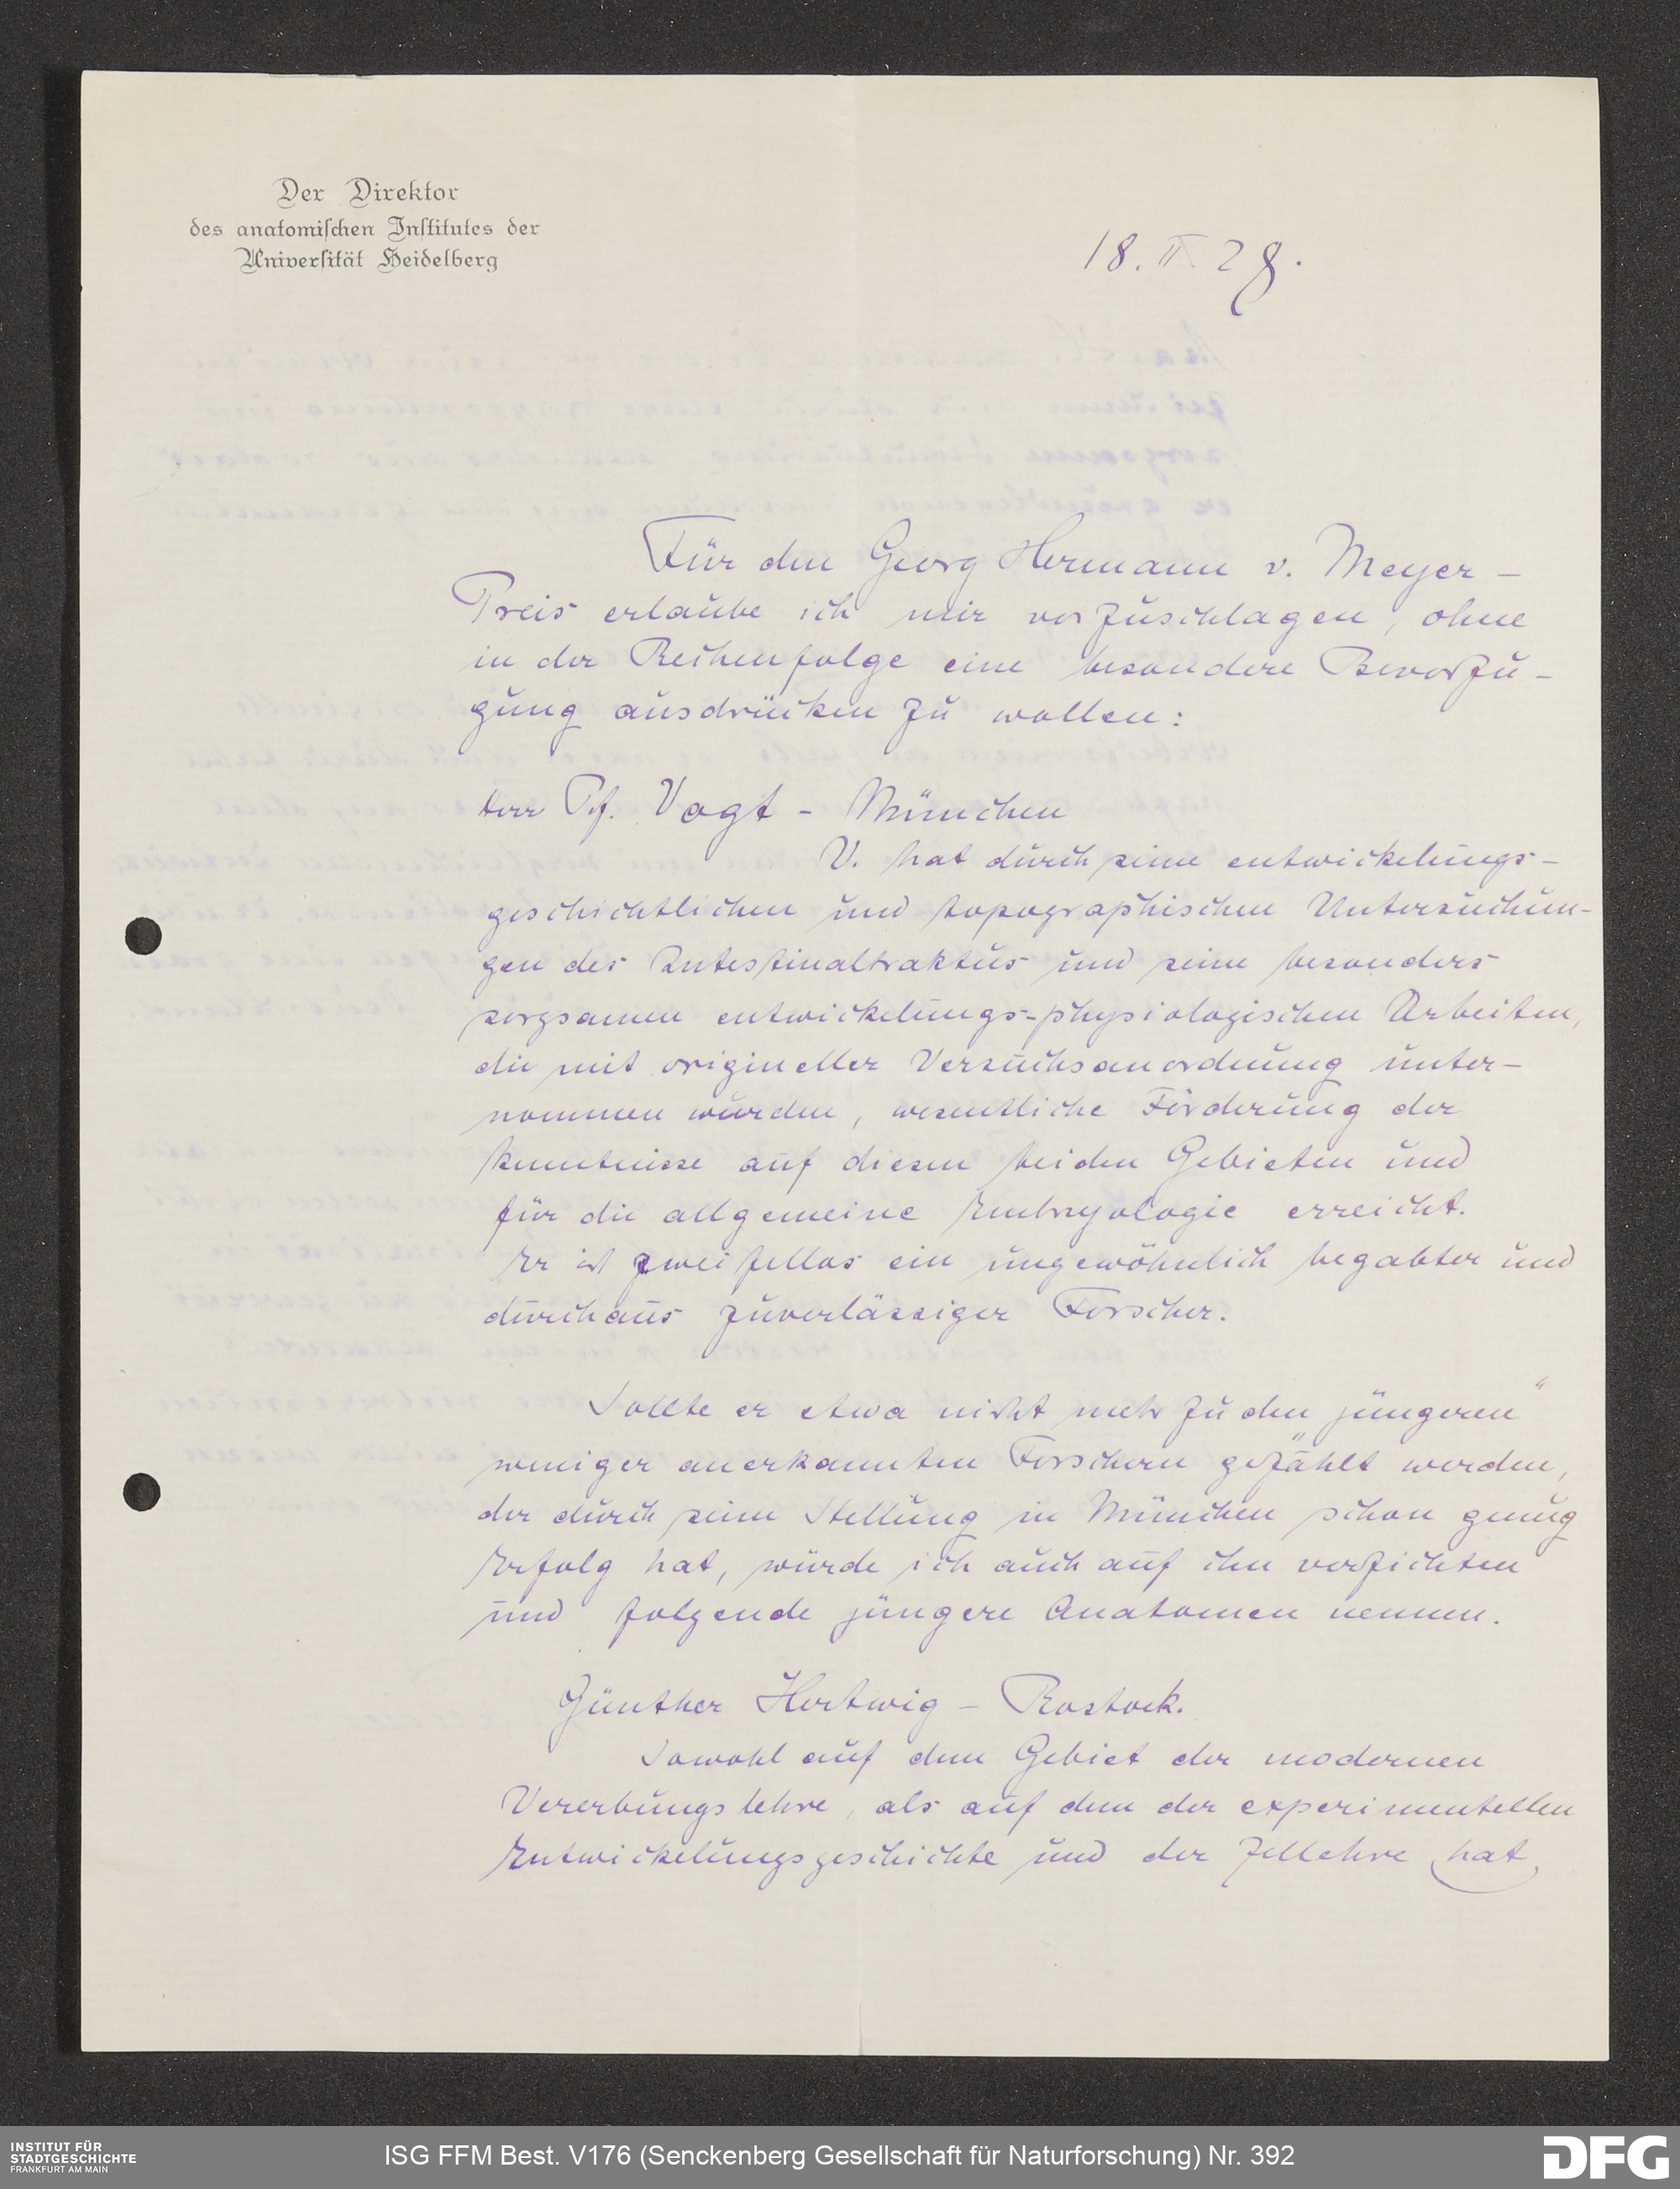 Der Direktor
des anatomischen Institutes der
Universität Heidelberg
18. II. 28.
Für den Georg Hermann v. Meyer-
Preis erlaube ich mir vorzuschlagen, ohne
in der Reihenfolge eine besondere Bevorzu-
gung ausdrücken zu wollen:
Herr Prf. Vogt - München
V. hat durch seine entwickelungs-
geschichtlichen und topographischen Untersuchun-
gen des Intestinaltraktus und seine besonders
sorgsamen entwickelungs-physiologischen Arbeiten,
die mit origineller Versuchsanordnung unter-
nommen wurden, wesentliche Förderung der
Kenntnisse auf diesen beiden Gebieten und
für die allgemeine Embryologie erreicht.
Er ist zweifellos ein ungewöhnlich begabter und
durchaus zuverlässiger Forscher.
Sollte er etwa nicht mehr zu den „jüngeren“
weniger anerkannten Forschern gezählt werden,
der durch seine Stellung in München schon genug
Erfolg hat, würde ich auch auf ihn verzichten
und folgende jüngere Anatomen nennen.
Günther Hertwig - Rostock.
Sowohl auf dem Gebiet der modernen
Vererbungslehre, als auf dem der experimentellen
Entwickelungsgeschichte und der Zellehre hat
INSTITUT FÜR
STADTGESCHICHTE
FRANKFURT AM MAIN
ISG FFM Best. V176 (Senckenberg Gesellschaft für Naturforschung) Nr. 392
DFG